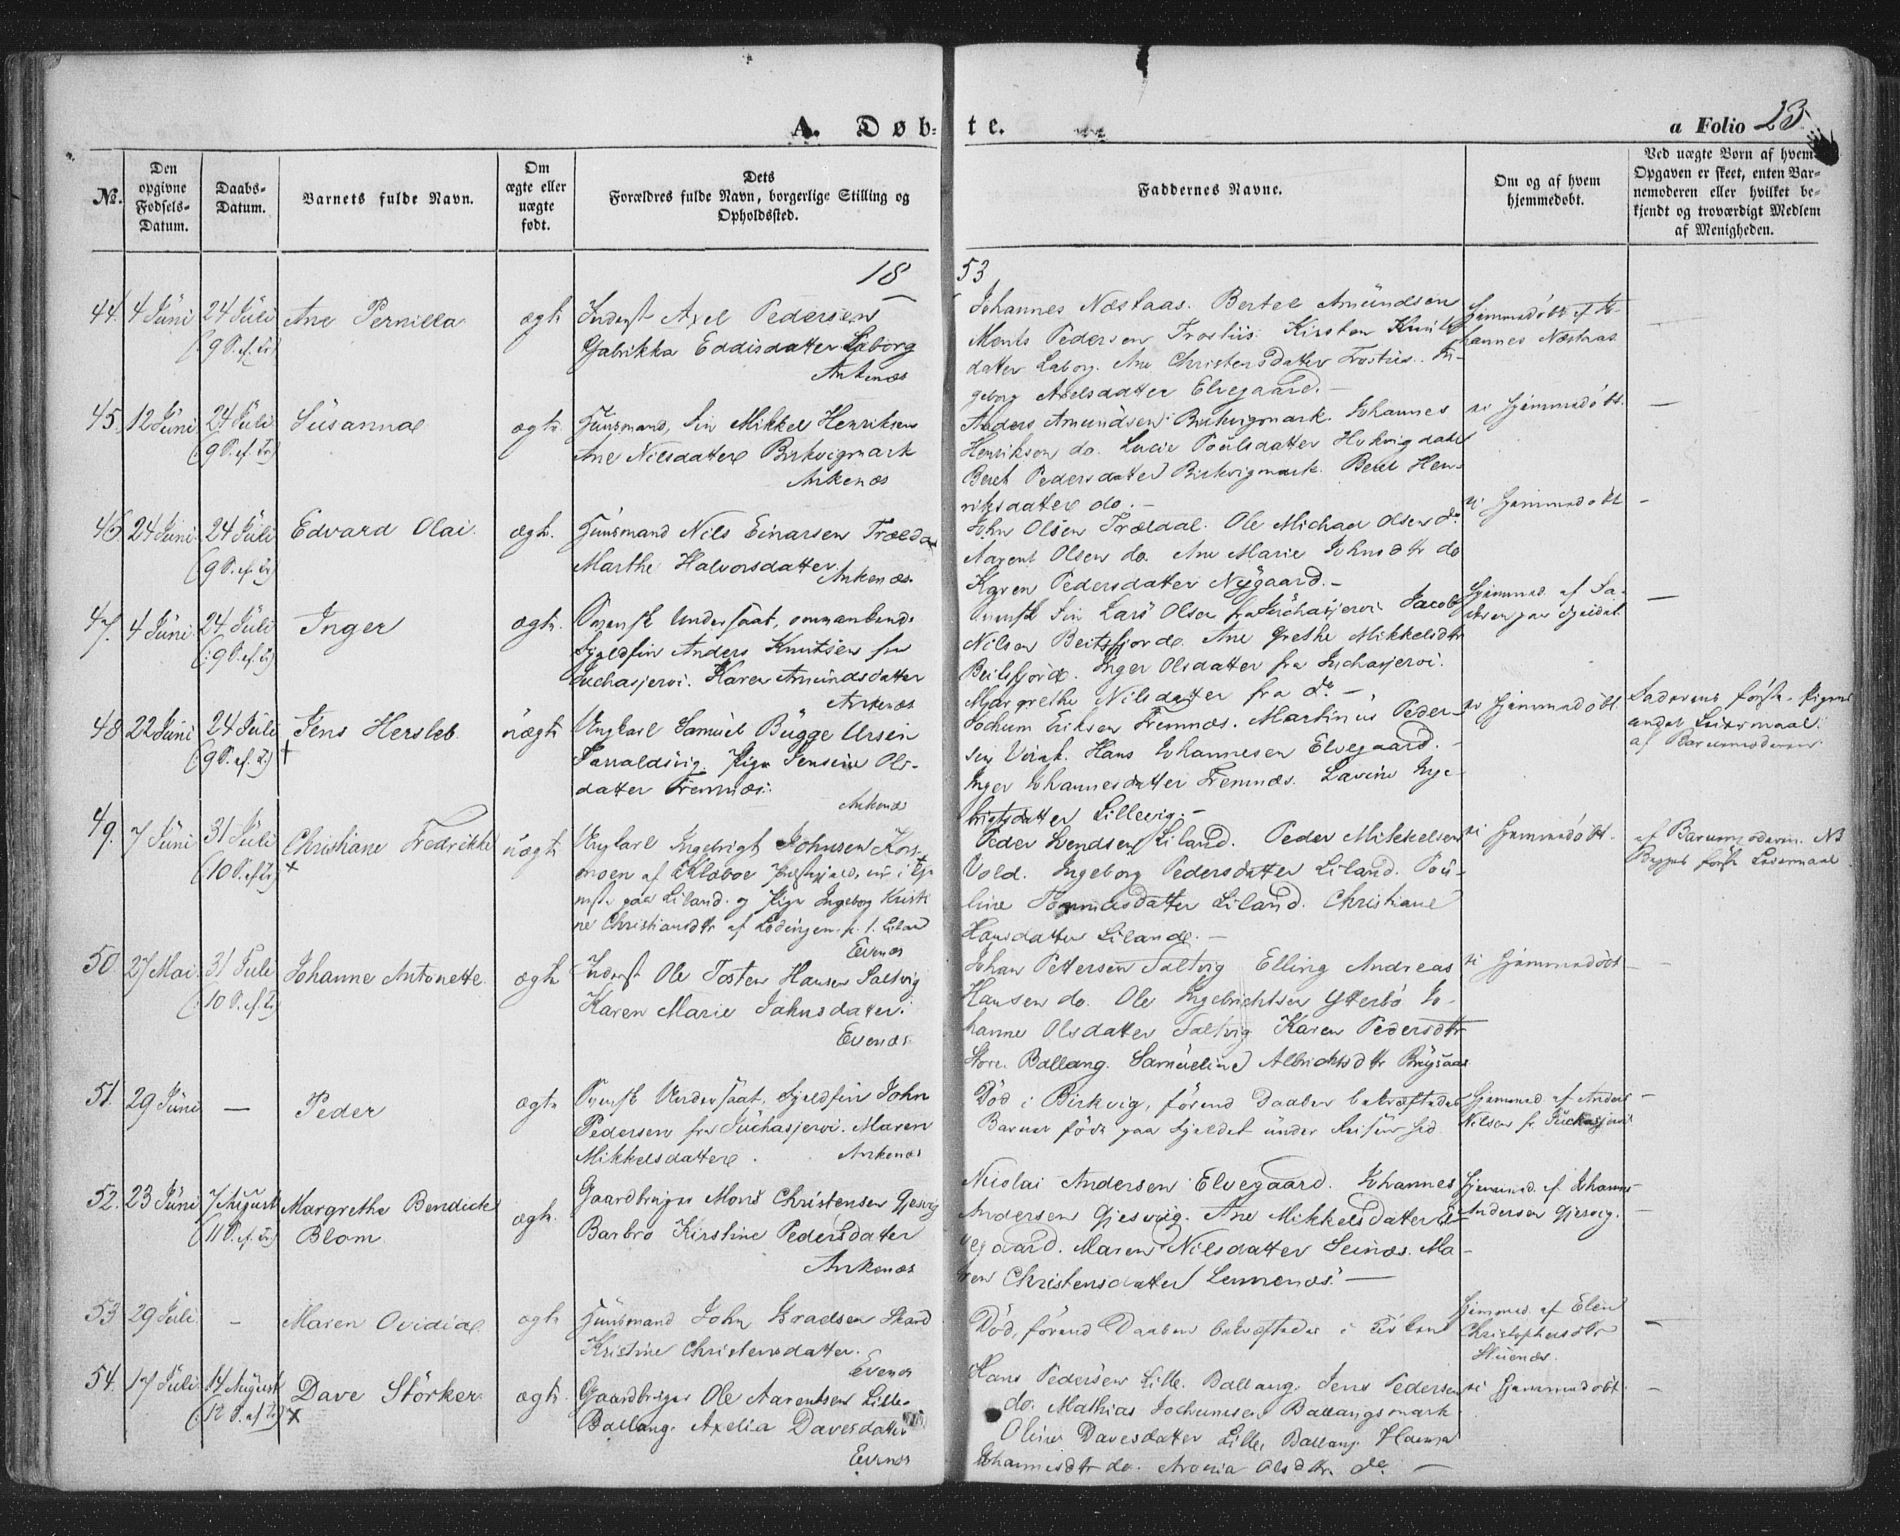 A. Døb-
te.
a Folio 23.
No.
Den opgivne Fødsels-Datum.
Daabs-Datum.
Barnets fulde Navn.
Om ægte eller uægte født.
Dets Forældres fulde Navn, borgerlige Stilling og Opholdssted.
Faddernes Navne.
Om og af hvem hjemmedøbt.
Ved uægte Børn af hvem Opgaven er skeet, enten Barnemoderen eller hvilket bekjendt og troværdigt Medlem af Menigheden.
18
53
44. 4 Juni 24 Juli Ane Pernilla ægte Inderst Axel Pedersen
(9 S. ef. Tr)
Gabrikka Eddisdatter Laborg
Ankenæs
Johannes Næstaas. Bertel Amundsen
Monts Pedersen Trostiis. Kirsten Knuts
datter Laborg. Ane Christensdatter Trostiis. In-
geborg Axelsdatter Elvegaard. –
Hjemmedøbt af Jo-
hannes Næstaas
45. 12 Juni 24 Juli Susanna ægte Huusmand, Fin Mikkel Henriksen
(9 S. ef. Tr)
Ane Nilsdatter Birkvigmark
Ankenæs
Anders Amundsen Birkvigmark. Johannes
Henriksen do. Lucie Poulsdatter
Beret Pedersdatter Birkvigmark. Beret Hen-
riksdatter do. –
ei Hjemmedøbt.
46 24 Juni 24 Juli Edvard Olai. ægte. Huusmand Nils Einarsen Trælda
(9 S. ef. Tr)
Marthe Halvorsdatter
Ankenæs.
John Olsen Trældal. Ole Michael Olsen do
Aarent Olsen do. Ane Marie Johnsdtr do
Karen Pedersdatter Nygaard. –
ei Hjemmedøbt
47. 4 Juni 24 Juli Inger ægte. Svensk Undersaat, omvankende
(9 S. ef. Tr)
Fjeldfin Anders Knutsen fra
Juchasjervi. Karen Amundsdatter
Ankenæs
Svensk Fin Lars Olsen fra Juchasjervi Jacob
Nilsen Beitsfjord. Ane Grethe Mikkelsdtr
Beitsfjord. Inger Olsdatter fra Juchasjervi.
Margrethe Nilsdatter fra do –
48 22 Juni 24 Juli Jens Hersleb uægte Ungkarl Samuel Bugge Ursin
(9 S. ef. Tr)
Haraldsvig. Pige Jensine Ols-
datter Fremnæs.
Ankenæs
Jochum Eriksen Fremnæs. Martinus Peder-
sen Hans Johannesen Elvegaard. –
Inger Johannesdatter Fremnæs. Lavine Inge-
brigtsdatter Lillevig. –
ei Hjemmedøbt
Faderens første, Pigens
andet Leiermaal.
af Barnemoderen.
49. 7 Juni 31 Juli Christiane Fredrikke uægte Ungkarl Ingebrigt Johnsen Kors-
(10 S. ef. Tr)
moen af Klæboe Præstegjeld, nu i Tje-
neste paa Liland. og Pige Ingeborg Kristi-
ne Christiansdtr af Lødingen p. t. Liland
Evenæs
Peder Svendsen Liland. Peder Mikkelsen
Vold. Ingeborg Pedersdatter Liland. Pou-
line Tommesdatter Liland. Christiane
Hansdatter Liland. –
ei Hjemmedøbt.
af Barnemoderen. NB
Begges første Leiermaal
50. 27 Mai. 31 Juli Johanne Antonette. ægte Inderst Ole Tosten Hansen Saltvig
(10 S. ef. Tr)
Karen Marie Johnsdatter.
Evenæs
Johan Pettersen Saltvig Elling Andreas
Hansen do. Ole Ingebrichtsen Ytterbø Jo-
hanne Olsdatter Saltvig Karen Pedersdtr
Store Ballang. Samueline Albrichtsdtr
ei Hjemmedøbt
51. 29 Juni – Peder ægte Svensk Undersaat, Fjeldfin John
Pedersen fra Juchasjervi. Maren
Mikkelsdatter.
Ankenæs
Død i Birkvig, førend Daaben bekræftedes
Barnet født paa Fjeldet under
Hjemmed. af Anders
Nilsen fr. Juchasjervi
52. 23 Juni 7 August Margrethe Bendicte ægte. Gaardbruger Mons Christensen Gjesvig
(11 S. ef. Tr)
Blom
Barbro Kirstine Pedersdatter
Ankenæs
Nicolai Andersen Elvegaard. Johannes
Andersen Gjesvig. Ane Mikkelsdatter El-
vegaard. Maren Nilsdatter Seinæs. Ma-
ren Christensdatter Lennenæs –
Hjemmed. af Johannes
Andersen Gjesvig.
53 29 Juli – Maren Ovidia ægte Huusmand John Skard
Kristine Christensdatter.
Evenæs
Død, førend Daaben bekræftedes i Kirken
Hjemmed. af Elen
Christophersdtr
54. 17 Juli. 14 August Dave Størker ægte. Gaardbruger Ole Aarentsen Lille-
(12 S. ef. Tr)
Ballang. Axelia Davesdatter
Evenæs
Hans Pedersen Lille Ballang. Jens Pedersen
do. Mathias Jochumsen Ballangsmark.
Oline Davesdatter Lille Ballang Hanna
Johannesdtr do. Aronia Olsdtr do –
ei Hjemmedøbt.